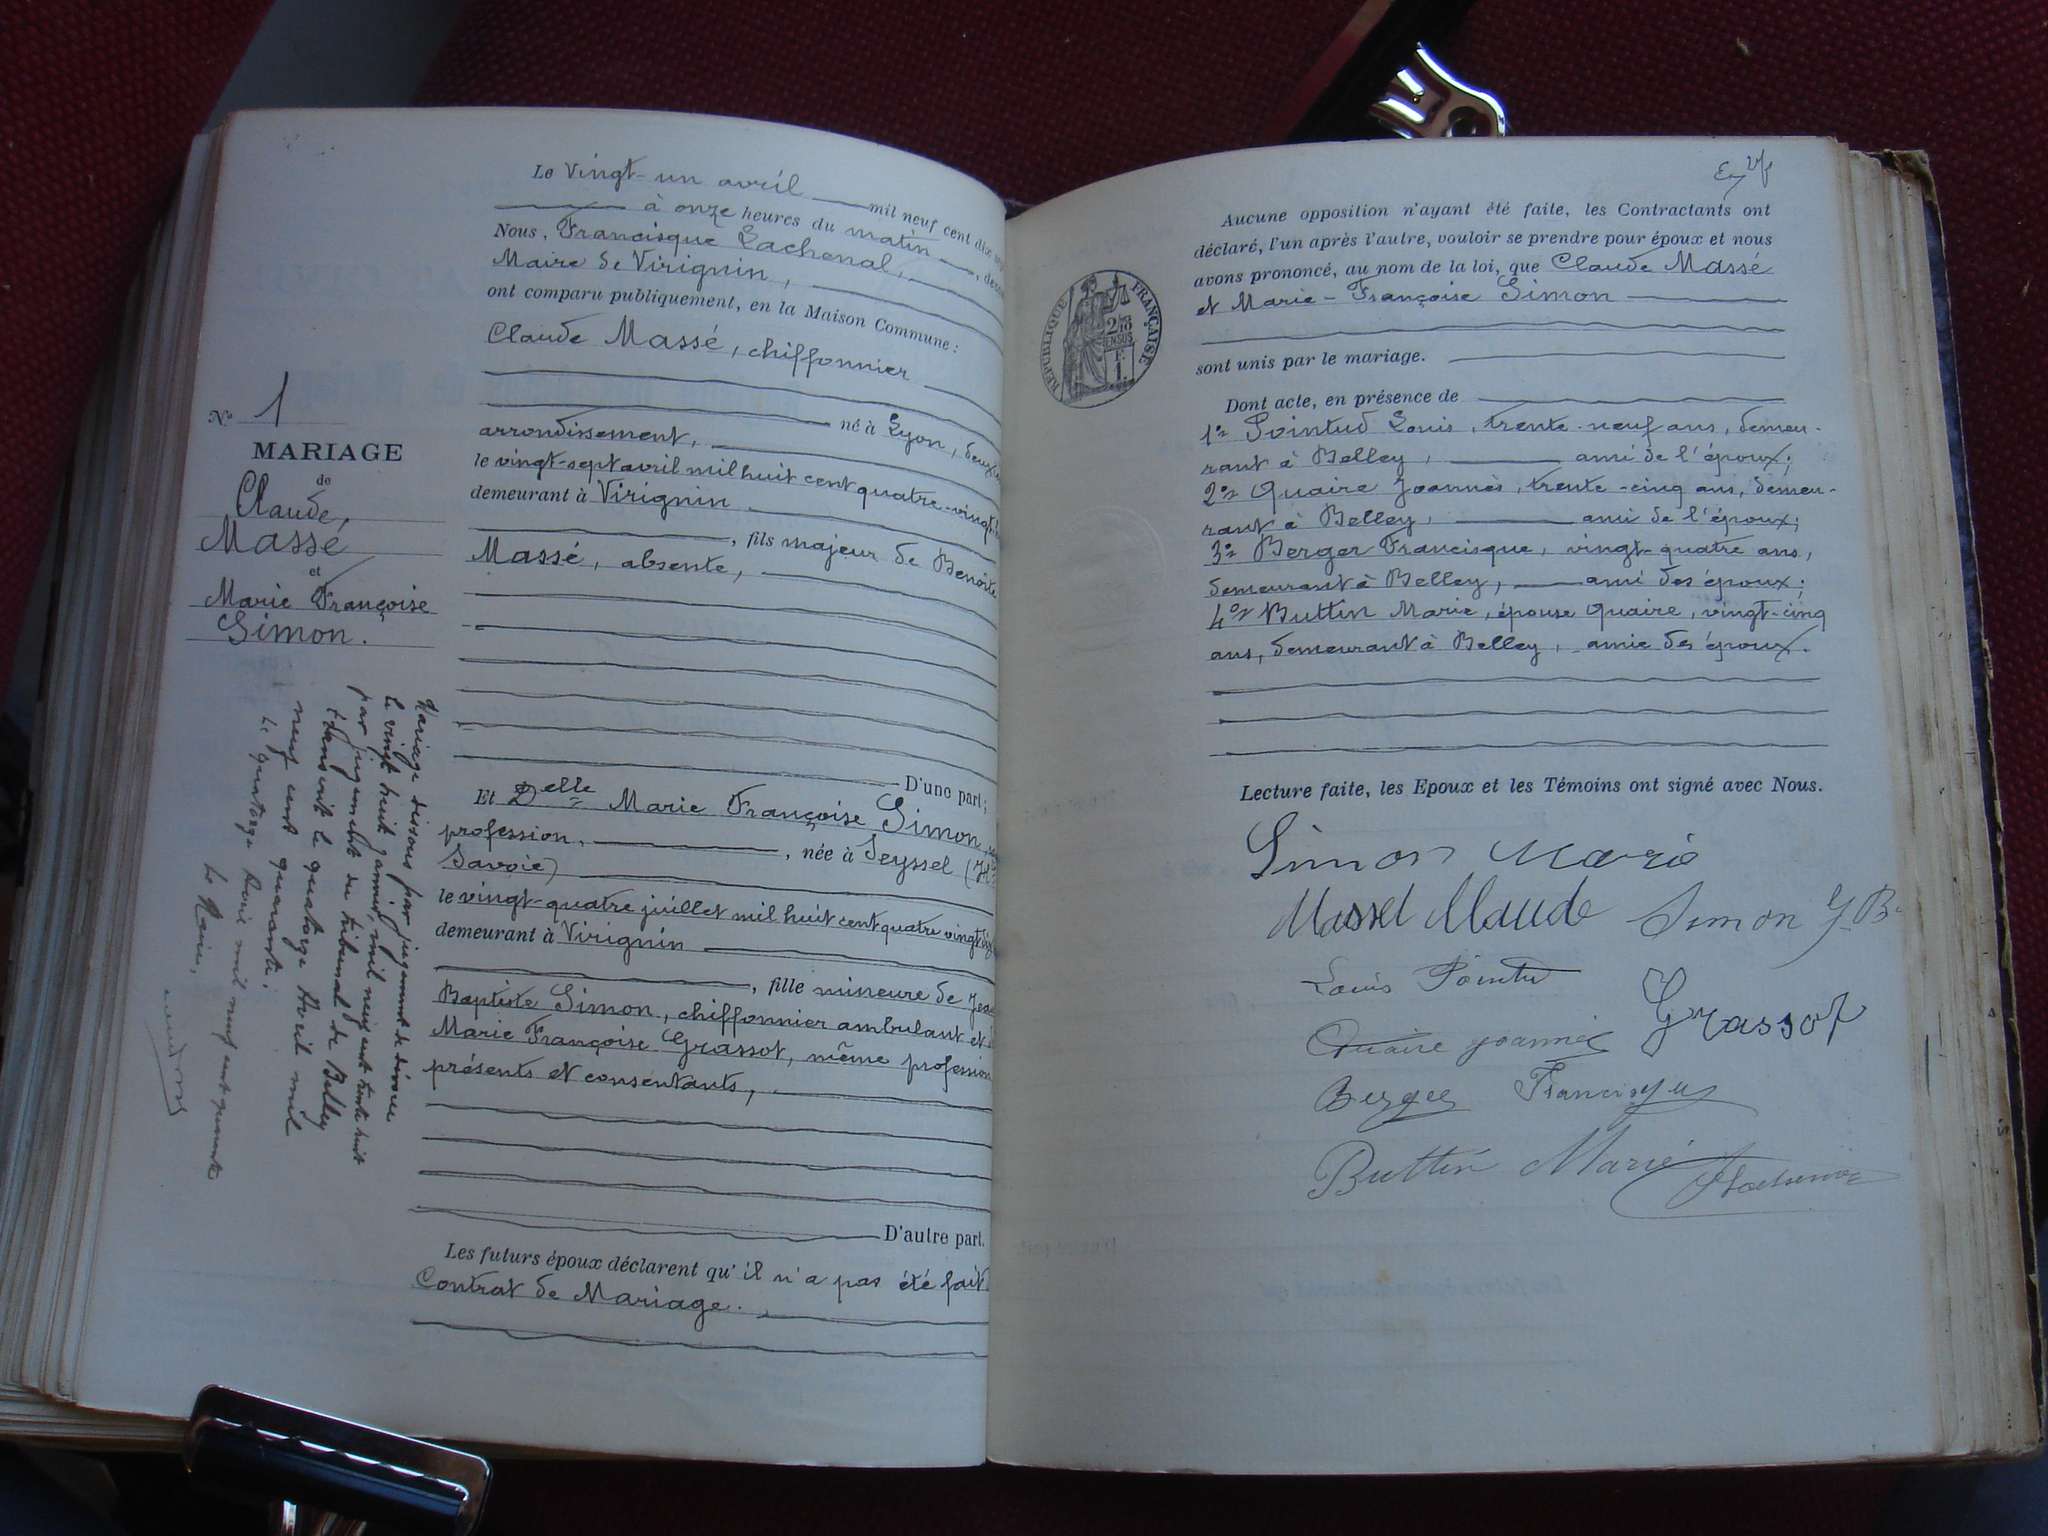 Le vingt-un avril mil neuf cent dix
à onze heures du matin
Nous, Francisque Lachenal,
Maire de Virignin,
ont comparu publiquement, en la Maison Commune :
Claude Massé, chiffonnier
né à Lyon,
arrondissement,
le vingt-sept avril mil huit cent quatre-vingt
demeurant à Virignin
, fils majeur de Benoite
Massé, absente,
D'une part ;
Et Delle Marie Françoise Simon,
profession, , née à Seyssel (Hte
Savoie)
le vingt-quatre juillet mil huit cent quatre vingt
demeurant à Virignin
, fille mineure de Jean
Baptiste Simon, chiffonnier ambulant et
Marie Françoise Grassot, même profession
présents et consentants,
D'autre part.
Les futurs époux déclarent qu'il n'a pas été fait
Contrat de Mariage.
No 1
MARIAGE
de
Claude
Massé
et
Marie Françoise
Simon.
Mariage dissous par jugement de divorce
le vingt huit janvier mil neuf cent trente huit
par jugement du tribunal de Belley
transcrit le quatorze Avril mil
neuf cent quarante.
Le quatorze Avril mil neuf cent quarante
Le Maire,
Aucune opposition n'ayant été faite, les Contractants ont
déclaré, l'un après l'autre, vouloir se prendre pour époux et nous
avons prononcé, au nom de la loi, que Claude Massé
et Marie-Françoise Simon
sont unis par le mariage.
RÉPUBLIQUE FRANÇAISE
2/10
EN SUS
F.
1.
Dont acte, en présence de
1o Pointud Louis, trente-neuf ans, demeu-
rant à Belley, ami de l'époux ;
2o Quaire Joannès, trente-cinq ans, demeu-
rant à Belley, ami de l'époux ;
3o Berger Francisque, vingt-quatre ans,
demeurant à Belley, ami des époux ;
4o Buttin Marie, épouse Quaire, vingt-cinq
ans, demeurant à Belley, amie des époux.
Lecture faite, les Epoux et les Témoins ont signé avec Nous.
Simon Marie
Massel Claude Simon J B
Louis Pointu
Grassot
Quaire Joannès
Berger Francisque
Buttin Marie